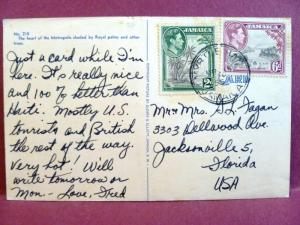 No. 215
The heart of the Metropolis shaded by Royal palms and other trees.
Just a card while I'm
here. It's really nice
and 100% better than
Haiti. Mostly U.S.
tourists and British
the rest of the way.
Very hot! Will
write tomorrow or
Mon. - Love, Fred
JAMAICA
2D
JAMAICA
6D
Mr & Mrs. G. L. Fagan
3303 Dellwood Ave.
Jacksonville 5,
Florida
USA